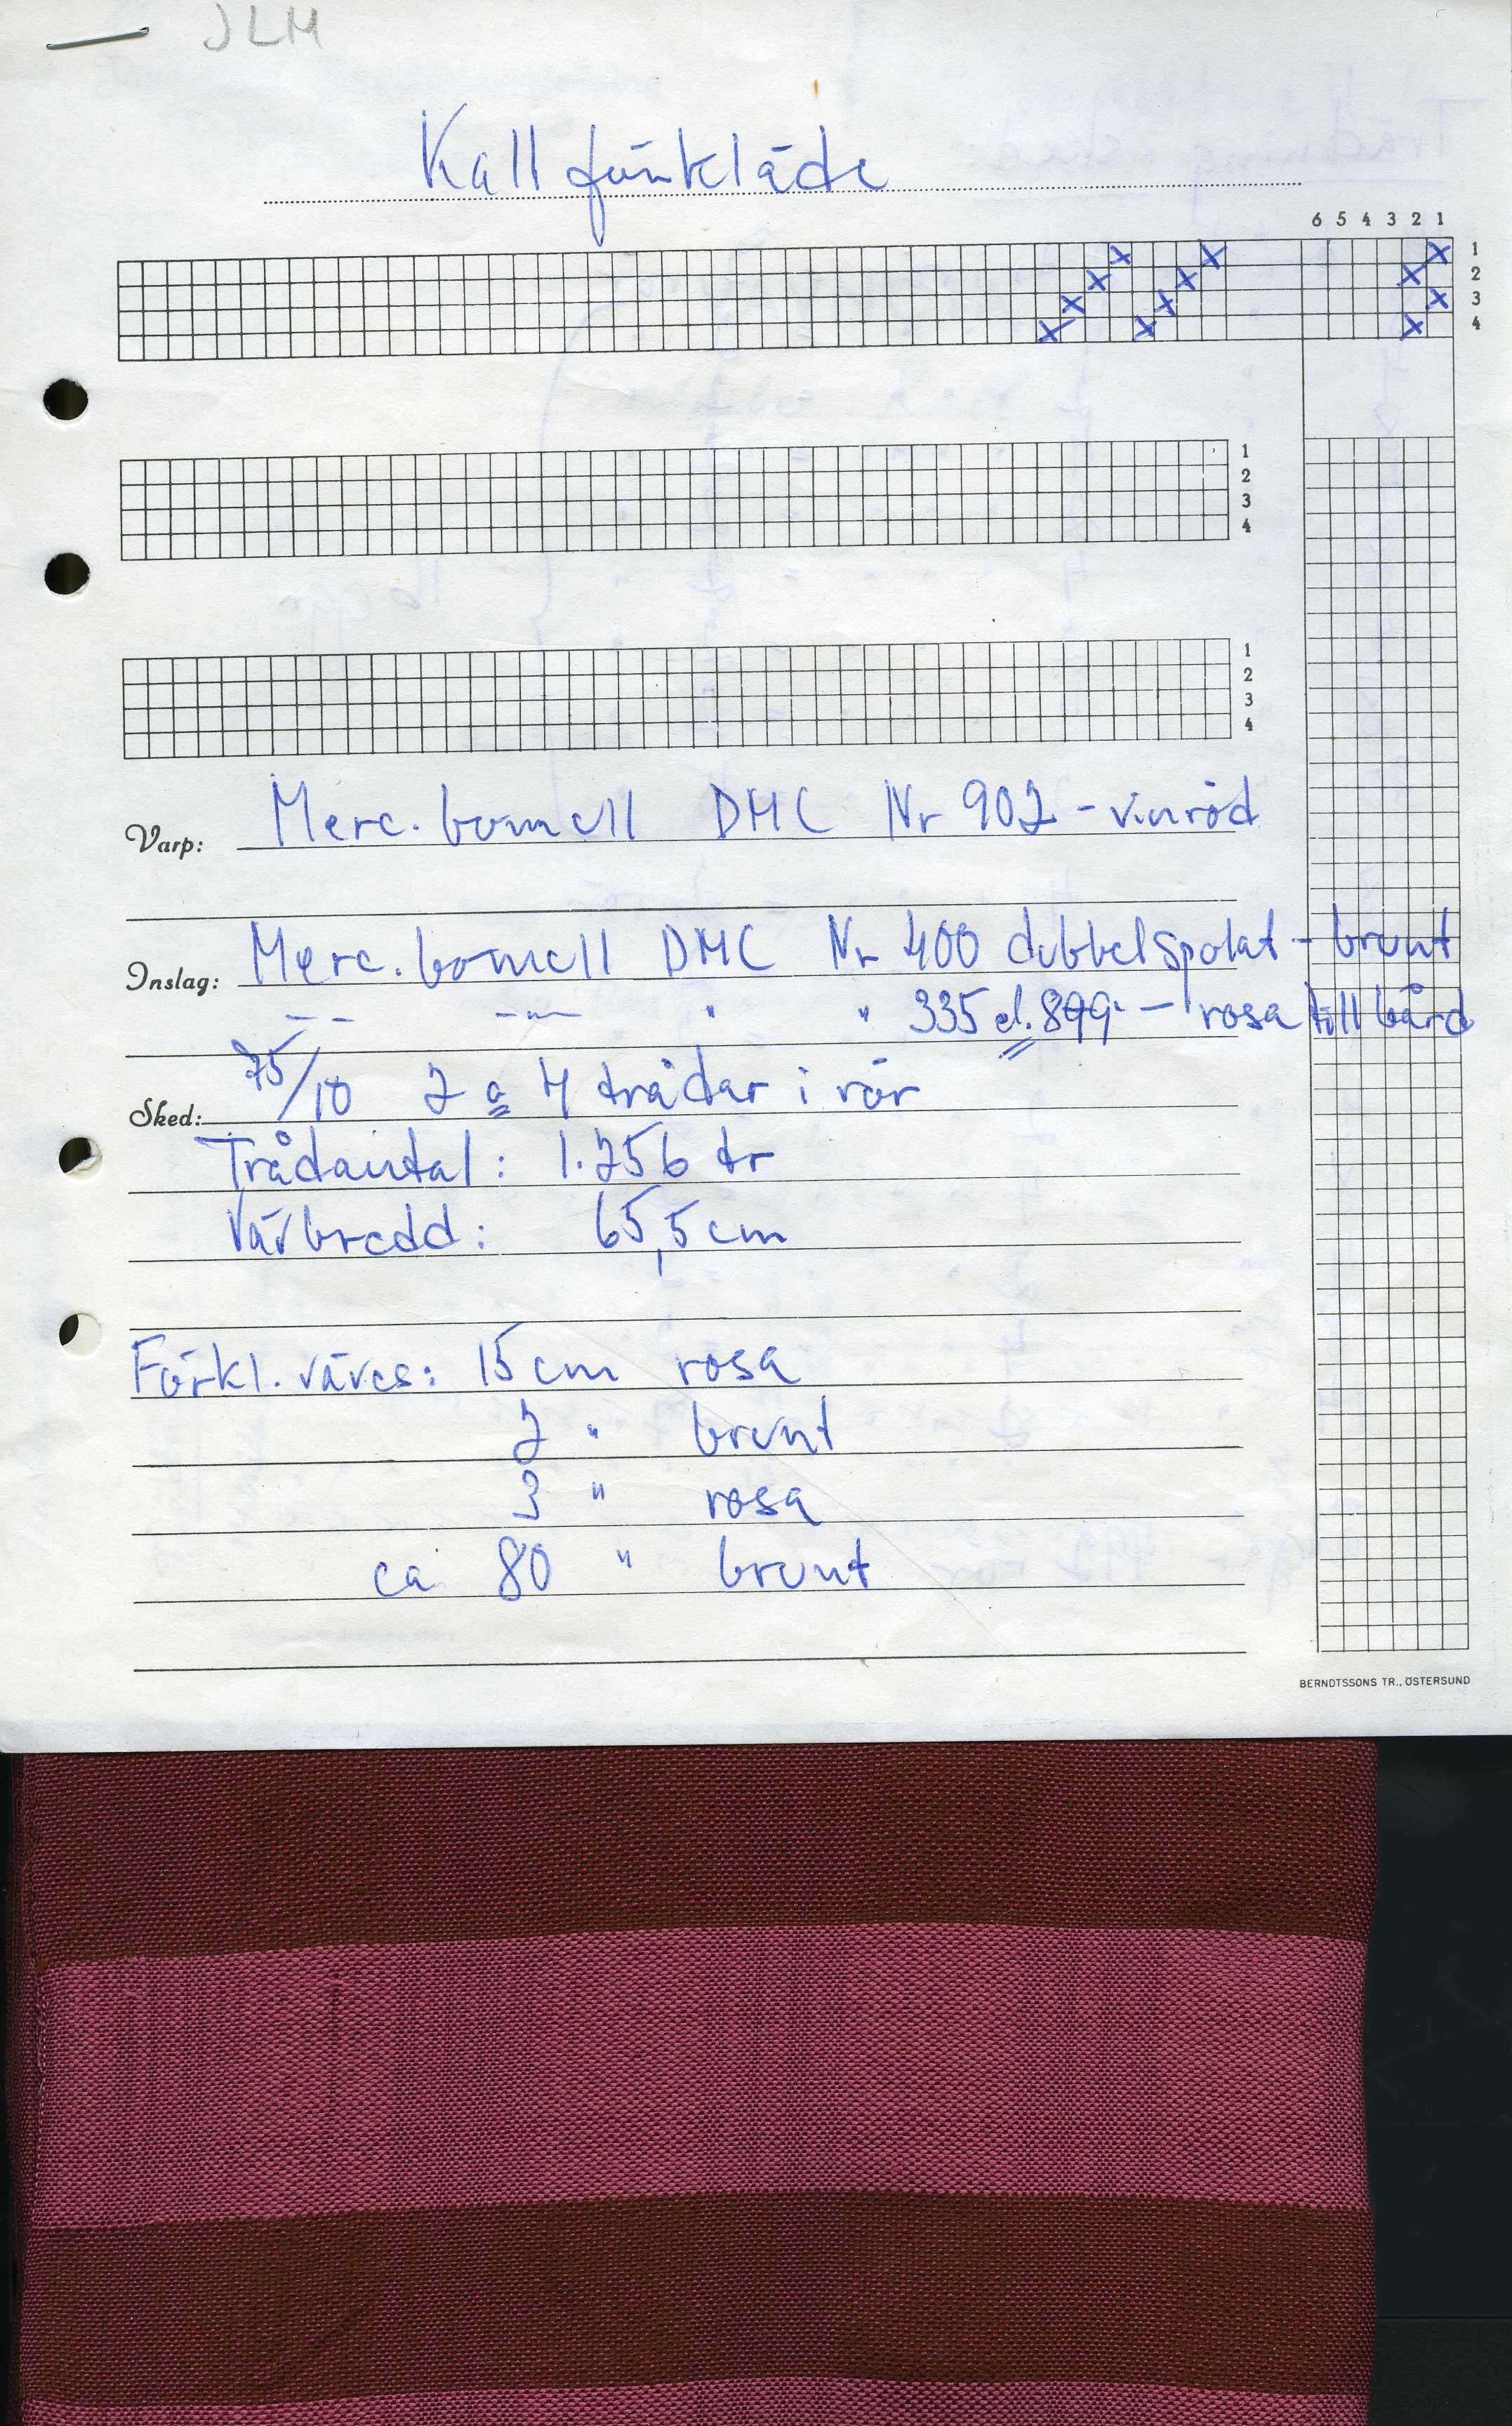 JLM
Kallförkläde
6 5 4 3 2 1
1
2
3
4
1
2
3
4
1
2
3
4
Varp: Merc. bomull DMC Nr 902 - vinröd
Inslag: Merc. bomull DMC Nr 400 dubbelspolat - brunt
- - -"- " " 335 el. 899 - rosa till bård
Sked: 75/10 2 a 4 trådar i rör
Trådantal: 1.256 tr
Vävbredd: 65,5 cm
Förkl. väves: 15 cm rosa
2 " brunt
3 " rosa
ca 80 " brunt
BERNDTSSONS TR., ÖSTERSUND